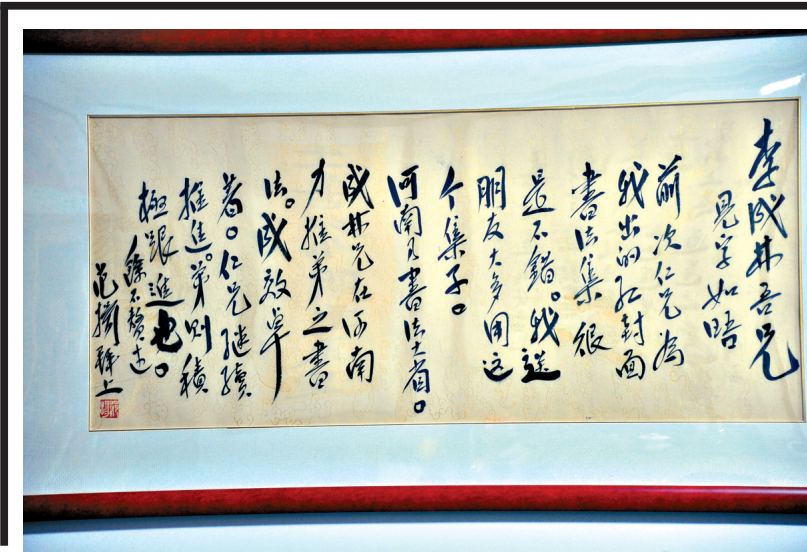 李成林吾兄
見字如晤
前次仁兄为
我出的红封面
書法集很
是不錯。我送
朋友大多用这
个集子。
河南乃書法大省。
成林兄在河南
力推弟之書
法。成效卓
著。仁兄继续
推进。弟则積
極跟進也。
餘不贅述
范揚 拜上